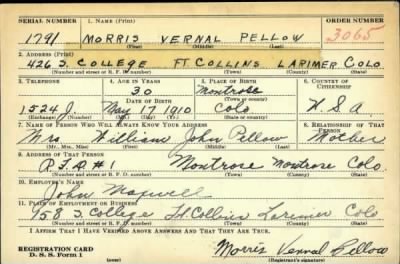 SERIAL NUMBER 1. NAME (Print) ORDER NUMBER
1791 MORRIS VERNAL PELLOW 3065
(First) (Middle) (Last)
2. ADDRESS (Print)
426 S. COLLEGE FT COLLINS LARIMER COLO
(Number and street or R. F. D. number) (Town) (County) (State)
3. TELEPHONE 4. AGE IN YEARS 5. PLACE OF BIRTH 6. COUNTRY OF CITIZENSHIP
30 Montrose
DATE OF BIRTH (Town or county)
1524 J. May 17 1910 Colo U.S.A
(Exchange) (Number) (Mo.) (Day) (Yr.) (State or country)
7. NAME OF PERSON WHO WILL ALWAYS KNOW YOUR ADDRESS 8. RELATIONSHIP OF THAT PERSON
Mrs William John Pellow Mother
(Mr., Mrs., Miss) (First) (Middle) (Last)
9. ADDRESS OF THAT PERSON
R.F.D.#1 Montrose Montrose Colo.
(Number and street or R. F. D. number) (Town) (County) (State)
10. EMPLOYER'S NAME
John Maxwell
11. PLACE OF EMPLOYMENT OR BUSINESS
153 S. College Ft Collins Larimer Colo
(Number and street or R. F. D. number) (Town) (County) (State)
I AFFIRM THAT I HAVE VERIFIED ABOVE ANSWERS AND THAT THEY ARE TRUE.
REGISTRATION CARD
D. S. S. Form 1 Morris Vernal Pellow
(Registrant's signature)